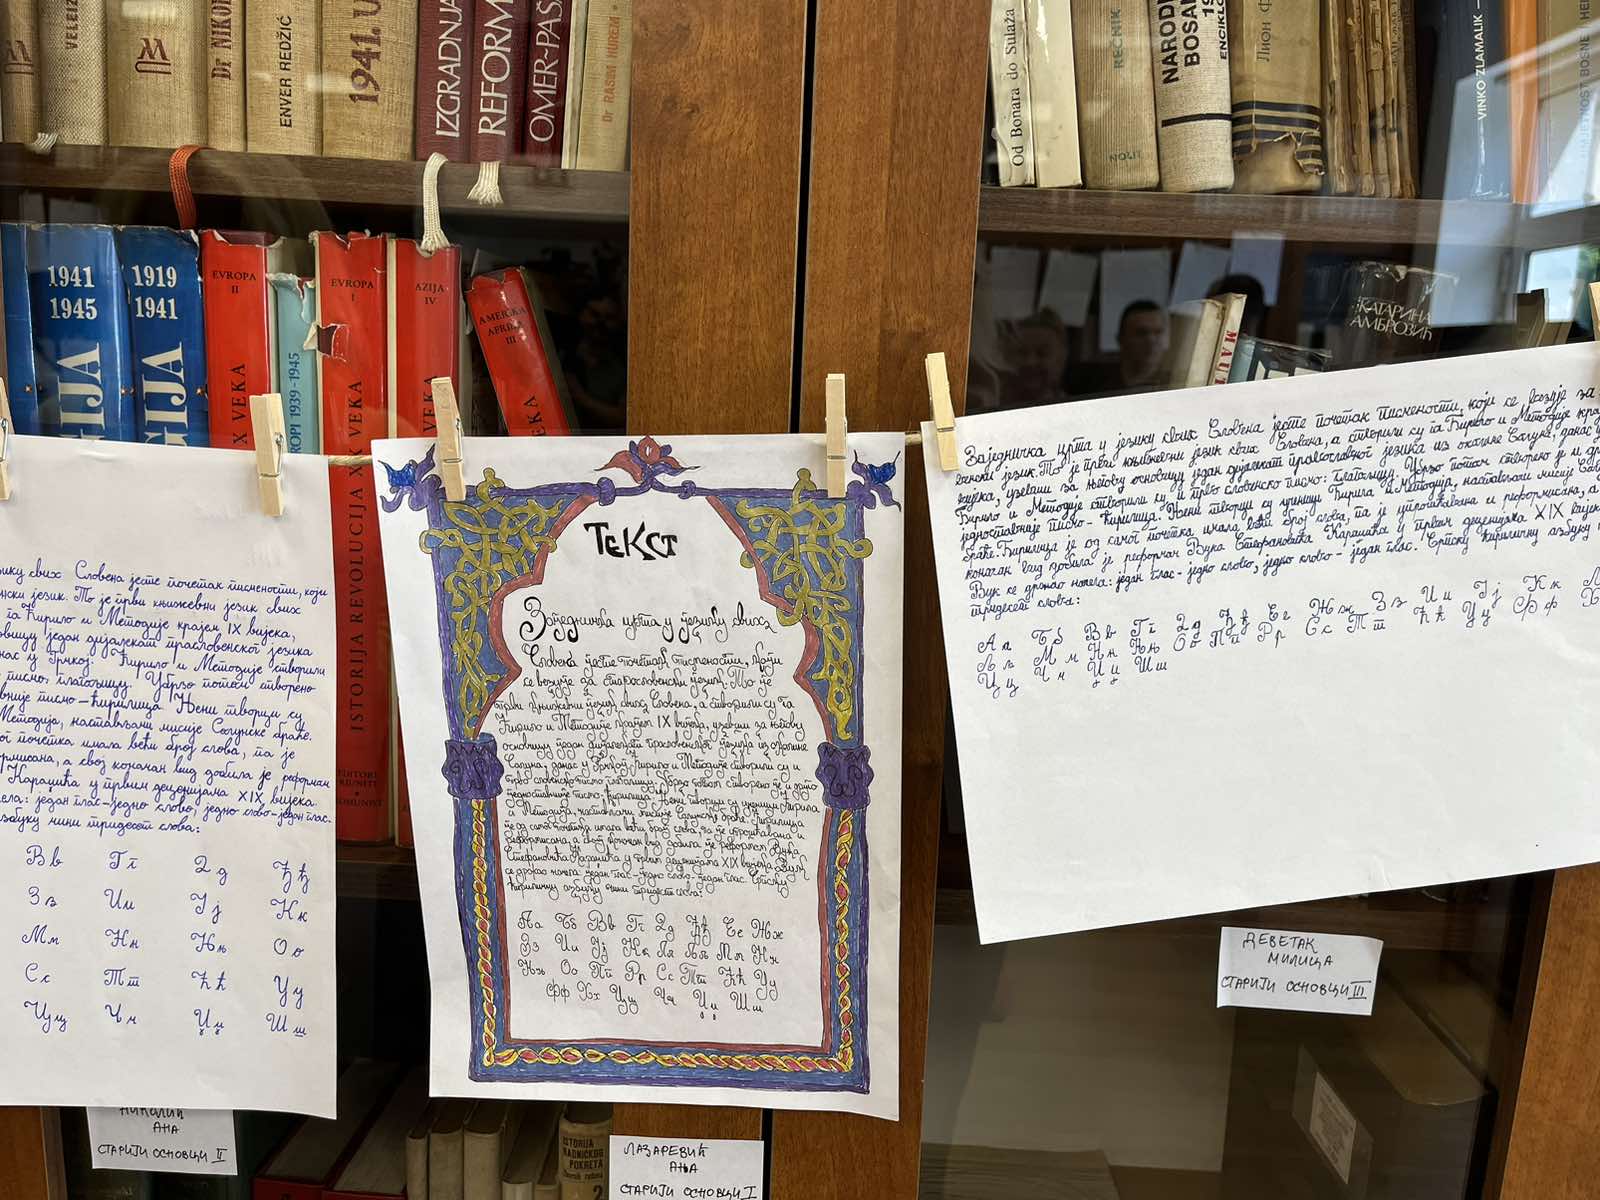 VELEIZ
Dr NIKOL
ENVER REDŽIĆ
1941. U
IZGRADNJA
REFORM
OMER-PAŠ
Dr RASIM HUREM
Od Bonara do Sulaža
REČNIK
NOLIT
NARODI
BOSAN
ENCIKLO
Лион Ф
VINKO ZLAMALIK
UMJETNOST BOSNE I HER
1941
1945
GIJA
1919
1941
GIJA
EVROPA
II
XX VEKA
1939-1945
EVROPA
I
ISTORIJA REVOLUCIJA XX VEKA
AZIJA
IV
АМЕRIКА
AFRIKA
III
VEKA
КАТАРИНА
АМБРОЗИЋ
зику свих Словена јесте почетак писмености, који
нски језик. То је први књижевни језик свих
та Ћирило и Методије крајем IX вијека,
овицу један дијалекат прасловенског језика
нас у Грчкој. Ћирило и Методије створили
писмо, глагољицу. Убрзо потом створено
вније писмо-ћирилица. Њени творци су
Методија, настављачи мисије Солунске браће.
ог почетка имала већи број слова, па је
рмисана, а свој коначан вид добила је реформом
Караџића у првим деценијама XIX вијека.
ела: један глас-једно слово, једно слово-један глас.
азбуку чини тридесет слова:
Вв Гг Дд Ђђ
Зз Ии Јј Кк
Мм Нн Њњ Оо
Сс Тт Ћћ Уу
Цц Чч Џџ Шш
НИКОЛИЋ
АНА
СТАРИЈИ ОСНОВЦИ II
Текст
Заједничка црта у језику свих
Словена јесте почетак писмености, који
се везује за старословенски језик. То је
први књижевни језик свих Словена, а створили су га
Ћирило и Методије крајем IX вијека, узевши за његову
основицу један дијалекат прасловенског језика из околине
Солуна, данас у Грчкој. Ћирило и Методије створили су и
прво словенско писмо глагољицу. Убрзо потом створено је и друго
једноставније писмо-ћирилица. Њени творци су ученици Ћирила
и Методија, настављачи мисије Солунске браће. Ћирилица
је од самог почетка имала већи број слова, па је упрошћавана и
реформисана, а свој коначан вид добила је реформом Вука
Стефановића Караџића у првим деценијама XIX вијека. Вук
се држао начела: један глас-једно слово-један глас. Српску
ћириличну азбуку чини тридесет слова:
Аа Бб Вв Гг Дд Ђђ Ее Жж
Зз Ии Јј Кк Лл Љљ Мм Нн
Њњ Оо Пп Рр Сс Тт Ћћ Уу
Фф Хх Цц Чч Џџ Шш
ЛАЗАРЕВИЋ
АЊА
СТАРИЈИ ОСНОВЦИ I
ISTORIJA
RADNIČKOG
POKRETA
2
Заједничка црта у језику свих Словена јесте почетак писмености, који се везује за
венски језик. То је први књижевни језик свих Словена, а створили су га Ћирило и Методије кра
вијека, узевши за његову основицу један дијалекат прасловенског језика из околине Солуна, данас у
Ћирило и Методије створили су и прво словенско писмо: глагољицу. Убрзо потом створено је и др
једноставније писмо-ћирилица. Њени творци су ученици Ћирила и Методија, настављачи мисије Сол
браће. Ћирилица је од самог почетка имала већи број слова, па је упрошћавана и реформисана, а
коначан вид добила је реформом Вука Стефановића Караџића у првим деценијама XIX вијека
Вук се држао начела: један глас-једно слово, једно слово-један глас. Српску ћириличну азбуку
тридесет слова:
Аа Бб Вв Гг Дд Ђђ Ее Жж Зз Ии Јј Кк
Љљ Мм Нн Њњ Оо Пп Рр Сс Тт Ћћ Уу Фф
Цц Чч Џџ Шш
ДЕВЕТАК
МИЛИЦА
СТАРИЈИ ОСНОВЦИ III